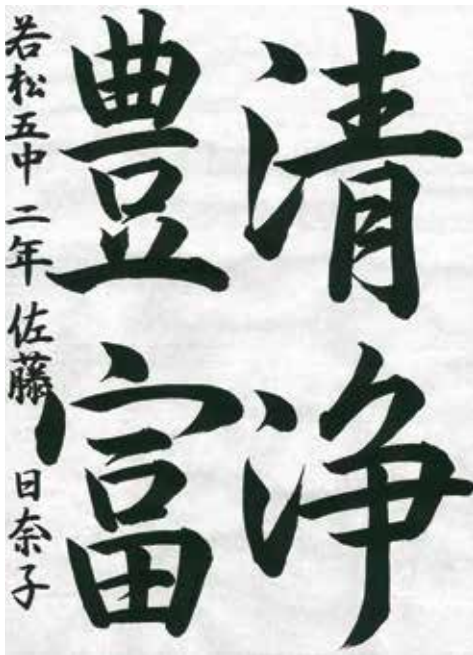 清浄
豊富
若松五中 二年 佐藤 日奈子